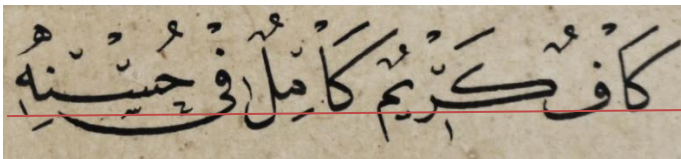 كَافٌ كَرِيمٌ كَامِلٌ فِي حُسْنِهِ